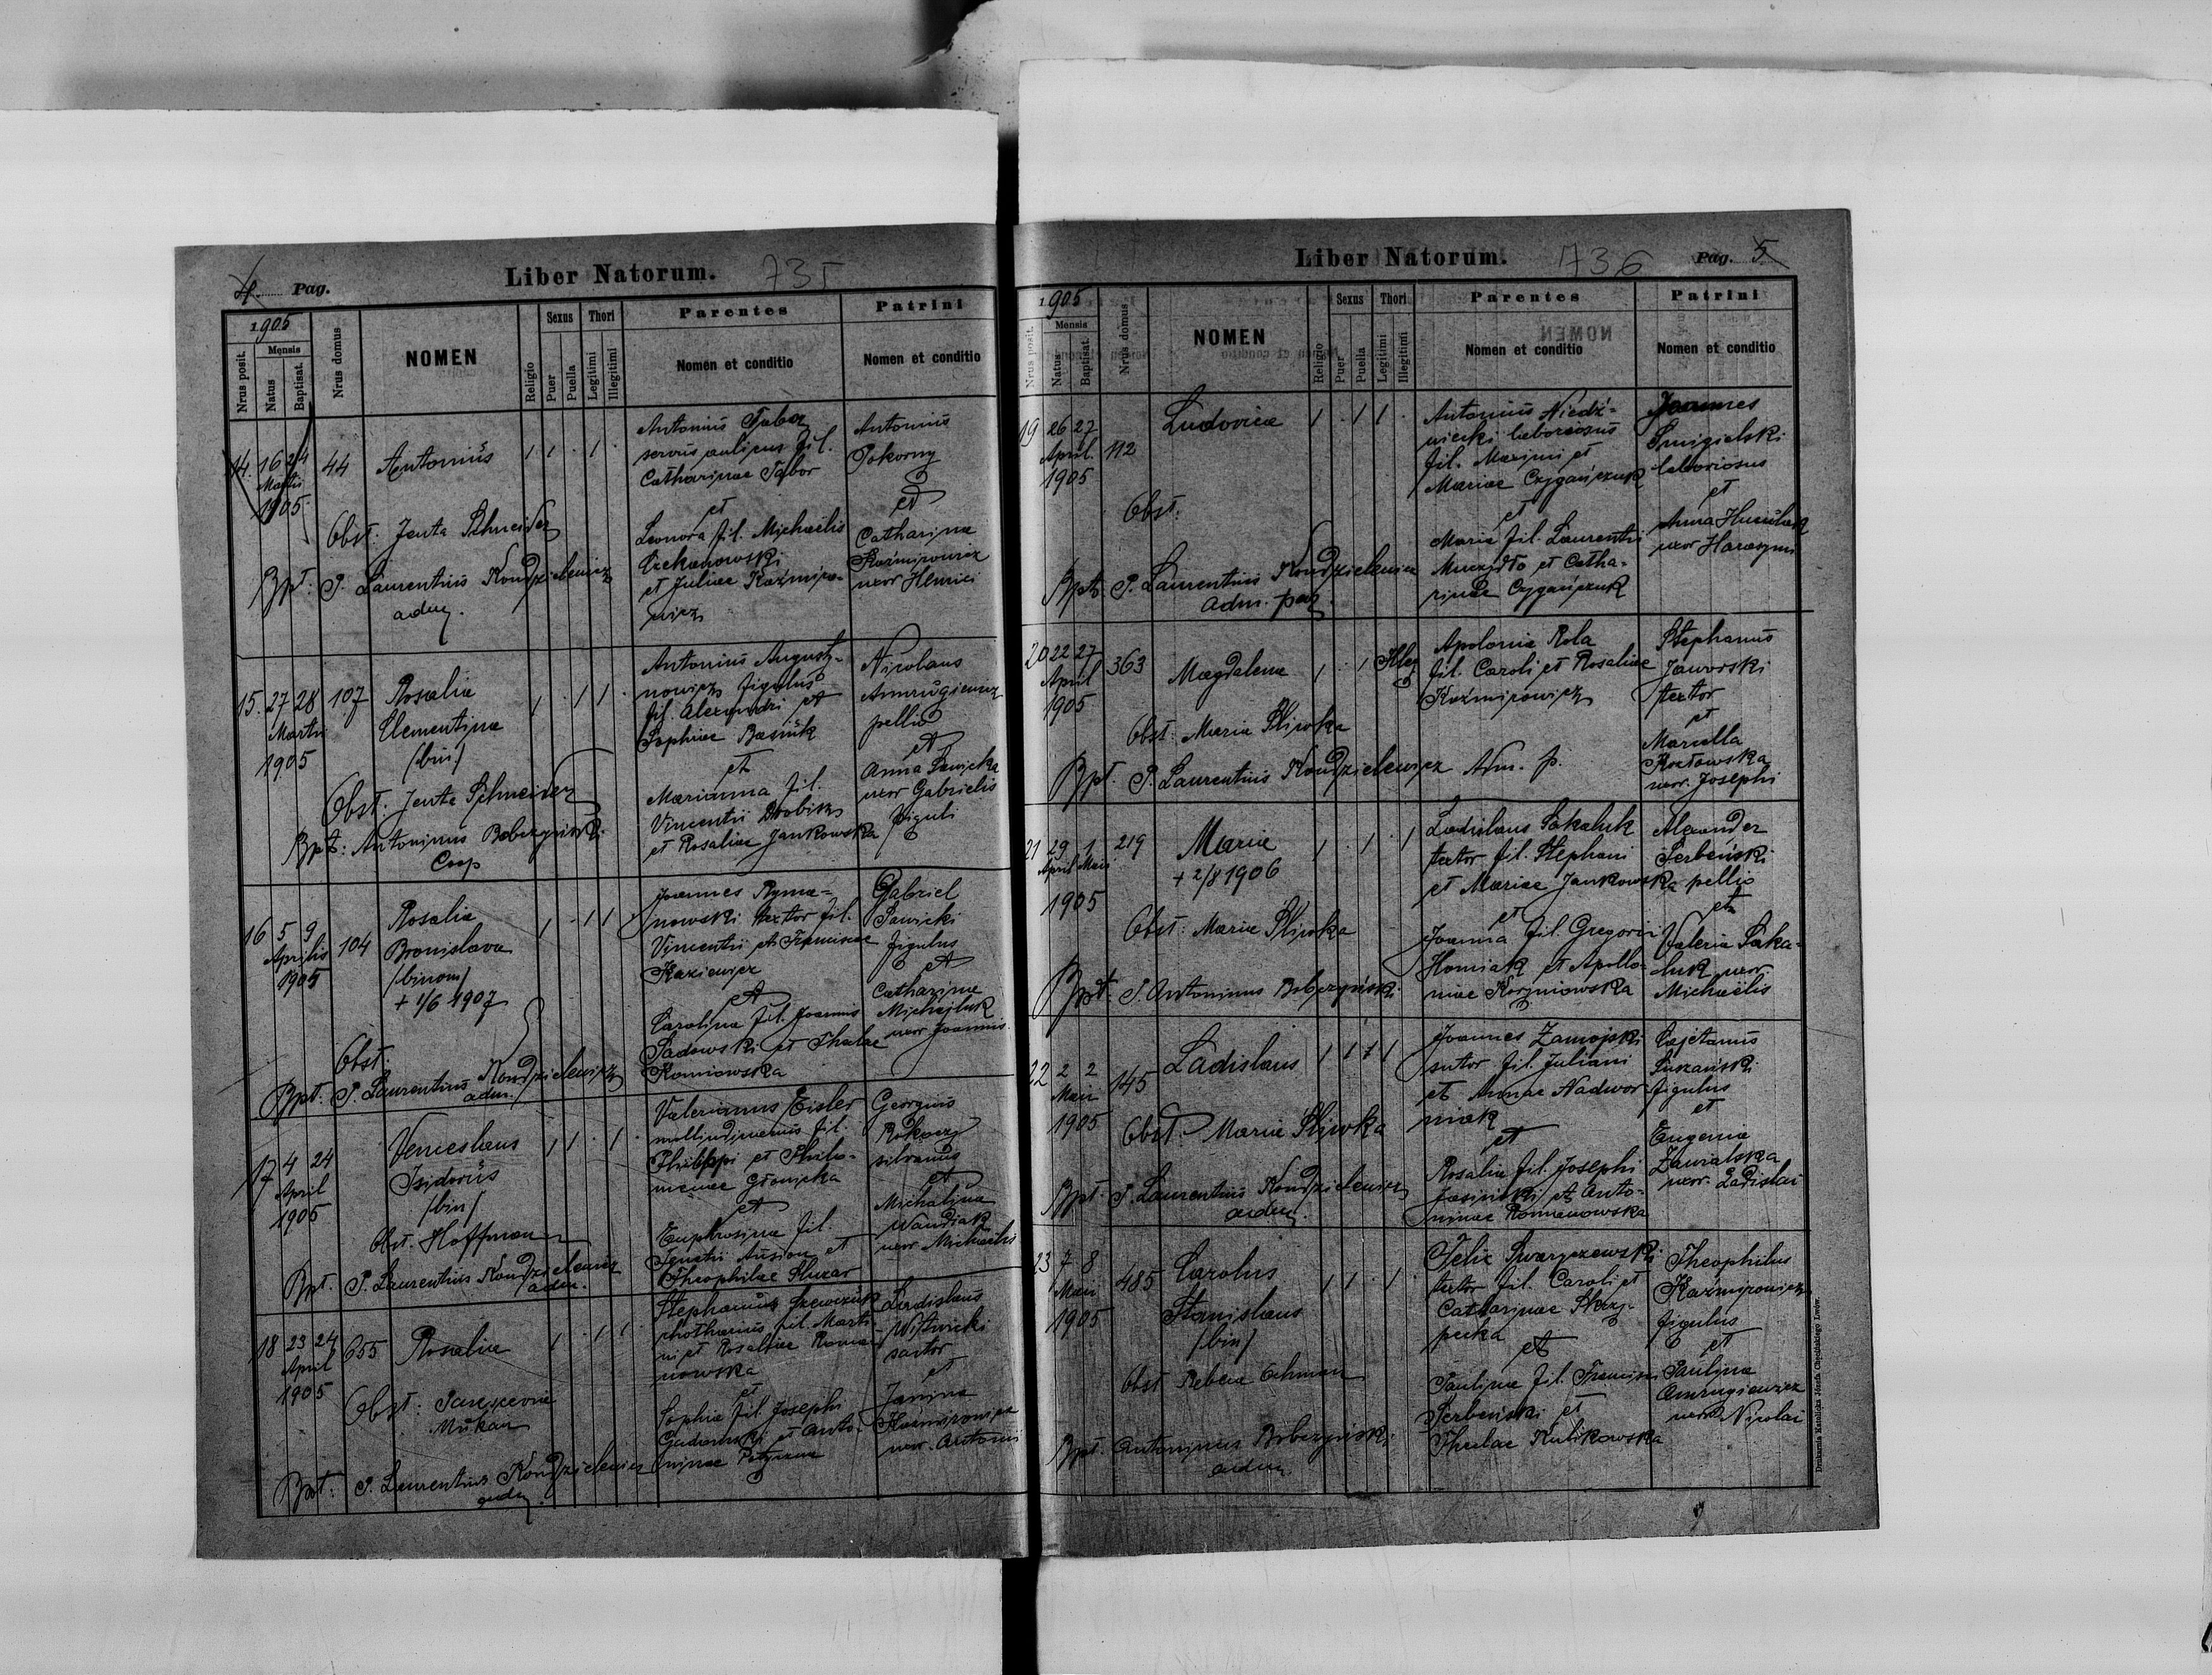 4. Pag.
Liber Natorum.
735
1905
Nrus posit.
Mensis
Natus
Baptisat.
Nrus domus
NOMEN
Religio
Sexus
Puer
Puella
Thori
Legitimi
Illegitimi
Parentes
Nomen et conditio
Patrini
Nomen et conditio
14. 16 24 44 Antonius 1 1 . 1 .
Martii
1905
Obst: Jenta Schneider
Bpt: P. Laurentius Kondzielewicz
adm.
Antonius Tabor
servus fil.
Catharinae Tabor
et
Leonora fil. Michaëlis
Czekanowski
et Juliae Kaźmiro-
wicz
Antonius
Pokorny
et
Catharina
Kaźmirowicz
uxor Henrici
15. 27 28 107 Rosalia 1 . 1 1 .
Martii Clementina
1905 /bin/
Obst. Jenta Schneider
Bpt: Antoninus Bobrzyński
Coop
Antonius Augusty-
nowicz figulus
fil. Alexandri et
Sophiae Basiuk
et
Marianna fil.
Vincentii Drobicz
et Rosaliae Jankowska
Nicolaus
pellio
et
Anna Sawicka
uxor Gabrielis
figuli
16 5 9 104 Rosalia 1 . 1 1
Aprilis Bronislava
1905 /binom/
+ 1/6 1907
Obst.
Bpt: P. Laurentius Kondzielewicz
adm.
Joannes Ryma-
nowski textor fil.
Vincentii et Franciscae
et
Carolina fil. Joannis
Sadowski et Theclae
Gabriel
Sawicki
figulus
et
Catharina
Michajluk
uxor Joannis
17 4 24 Venceslaus 1 1 . 1 .
April Isidorus
1905 /bin/
Obst. Hoffman
Bpt. P. Laurentius Kondzielewicz
adm.
Valerianus Eisler
fil.
Philippi et Philo-
menae
et
Euphrosina fil.
Ignatii et
Theophilae
Georgius
silvanus
et
Michalina
Wandiak
uxor Michaëlis
18 23 24 655 Rosalia 1 . 1 1
April
1905
Obst:
Mukan
Bpt: P. Laurentius Kondzielewicz
adm.
Stephanus Szewczuk
fil. Marti-
ni et Rosaliae Roma-
nowska
et
Sophia fil. Josephi
et Anto-
ninae
Ladislaus
Witwicki
sartor
et
Janina
Kaźmirowicz
uxor Antonii
Liber Natorum.
736
Pag. 5
1905
Nrus posit.
Mensis
Natus
Baptisat.
Nrus domus
NOMEN
Religio
Sexus
Puer
Puella
Thori
Legitimi
Illegitimi
Parentes
Nomen et conditio
Patrini
Nomen et conditio
19 26 27 112 Ludovica 1 . 1 1 .
April
1905
Obst.
Bpt. P. Laurentius Kondzielewicz
Adm. par.
Antonius Niedź-
wiecki laboriosus
fil. Maximi et
Mariae Cygańczuk
et
Maria fil. Laurentii
Muczydło et Catha-
rinae Cygańczuk
Joannes
Śmigielski
laboriosus
et
Anna
uxor
20 22 27 363 Magdalena 1 . 1 Illeg
April
1905
Obst: Maria Śliwka
Bpt. P. Laurentius Kondzielewicz Adm. p.
Apolonia Rola
fil. Caroli et Rosaliae
Kaźmirowicz
Stephanus
Jaworski
textor
et
Marcella
Kozłowska
uxor. Josephi
21 29 1 219 Maria 1 . 1 . 1
April Maii + 2/8 1906
1905
Obst: Maria Śliwka
Bpt: P. Antoninus Bobrzyński
Ladislaus Sakaluk
textor fil. Stephani
et Mariae Jankowska
et
Joanna fil. Gregorii
Homiak et Apollo-
niae Korzniowska
Alexander
Serbeński
pellio
et
Valeria Saka-
luk uxor
Michaëlis
22 2 2 145 Ladislaus 1 1 1 1
Maii
1905 Obst. Maria Śliwka
Bpt. P. Laurentius Kondzielewicz
adm.
Joannes Zamojski
sutor fil. Juliani
et Annae Nadwor-
niak
et
Rosalia fil. Josephi
Jasiński et Anto-
ninae Romanowska
Cajetanus
figulus
et
Eugenia
Zawialska
uxor. Ladislai
23 7 8 485 Carolus 1 1 . 1 .
Maii Stanislaus
1905 /bin/
Obst Rebeca
Bpt. Antoninus Bobrzyński
adm
Felix Swaryczewski
textor fil. Caroli et
Catharinae Skrzy-
pecka
et
Paulina fil. Francisci
Serbeński et
Theclae Kulikowska
Theophilus
Kaźmirowicz
figulus
et
Paulina
uxor Nicolai
Drukarnia Katolicka Józefa Chęcińskiego Lwów.